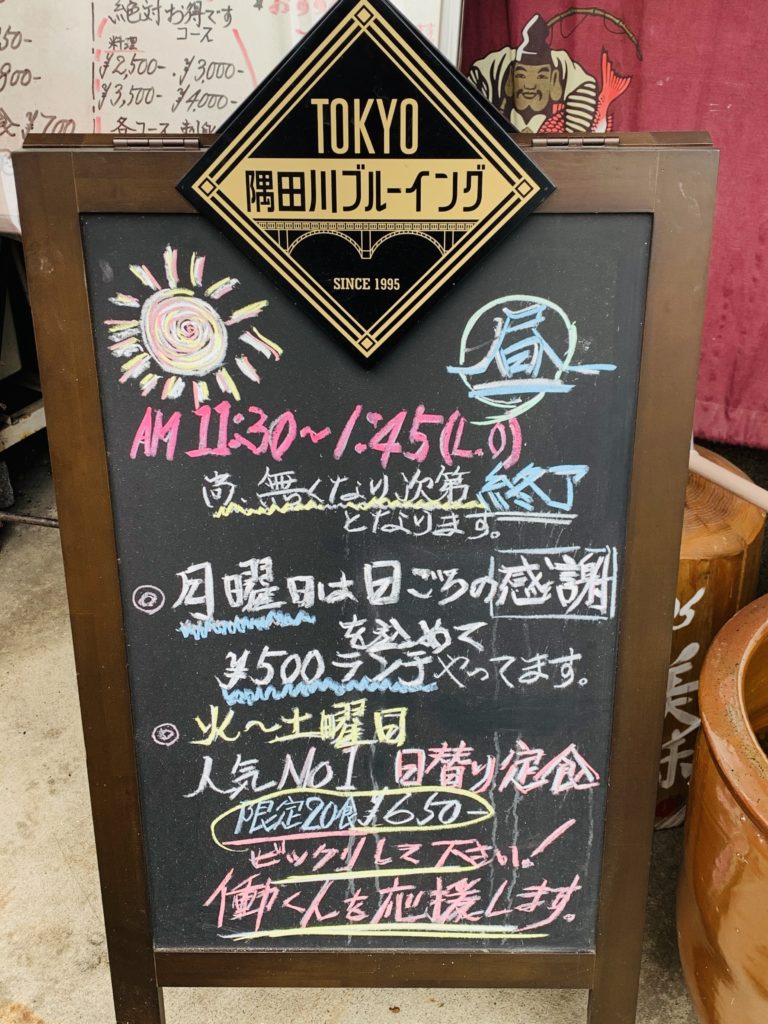 絶対お得です
コース
料理
¥2,500- ¥3,000-
¥3,500- ¥4,000-
各コース
¥700
TOKYO
隅田川ブルーイング
SINCE 1995
昼
AM 11:30〜1:45(L.O)
尚、無くなり次第、終了
となります。
◎月曜日は日ごろの感謝
を込めて
¥500ランチやってます。
◎火〜土曜日
人気NO1 日替り定食
限定20食¥650-
ビックリして下さい!
働く人を応援します。